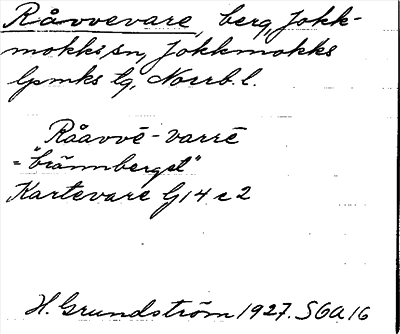 Råvvevare, berg, Jokk-
mokks sn, Jokkmokks
lpmks tg, Norrb. l.
Råavvē-varrē
= "brännberget"
Kartevare G 14 c 2
H. Grundström 1927. SOA 16